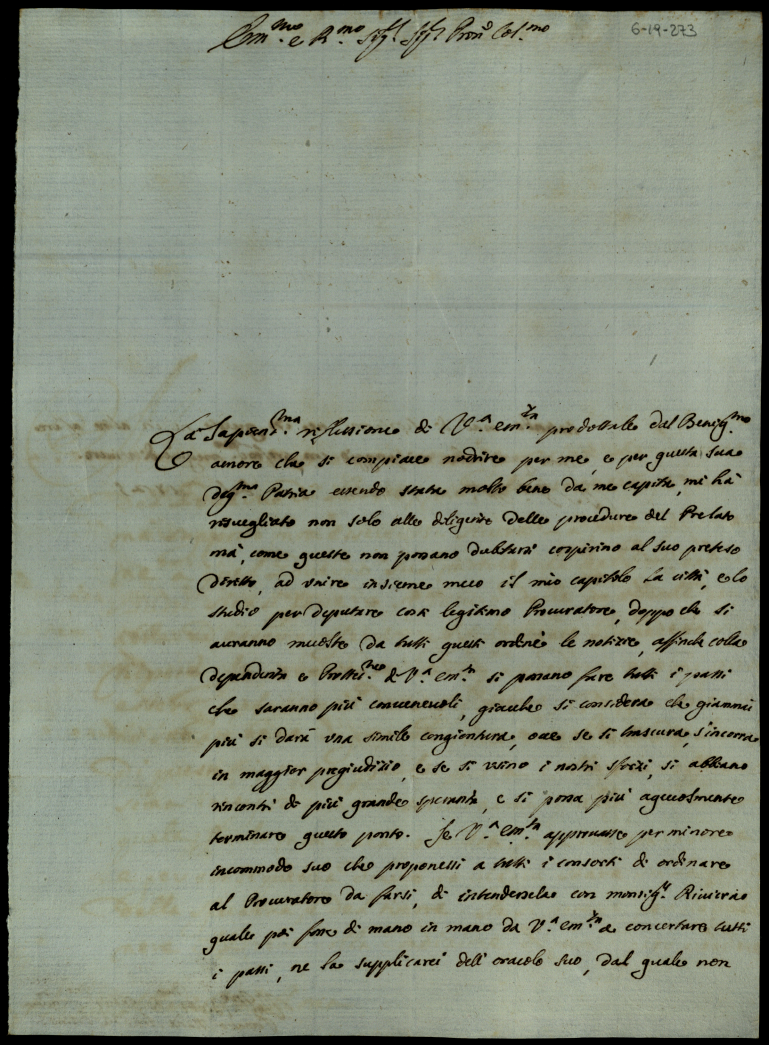 Em.mo e R.mo Sig.r Sig.r Pron.e Col.mo
6-19-273
La Sapient.ma riflessione di V.a Em.za prodottale dal Benig.mo
amore che si compiace nodrire per me, e per questa sua
Deg.ma Patria essendo stata molto bene da me capita, mi hà
risvegliato non solo alle diligenze delle procedure del Prelato
mà, come queste non ponano dubitarsi cospirino al suo preteso
diretto, ad unire insieme meco il mio capitolo la città, e lo
studio per deputare così legitimo Procuratore, doppo che si
avranno da tutti questi ordini le notizie, affinche colla
dependenza e Protez.ne di V.a Em.za si ponano fare tutti i passi
che saranno più convenevoli, giacche si considera che giammai
più si darà una simile congiontura, ove se si trascura, s'incorra
in maggior pregiudizio, e se si usino i nostri sforzi, si abbiano
rincontri di più grande speranza, e si possa più agevolmente
terminare questo ponto. Se V.a Em.za approvasse per minore
incommodo suo che proponessi a tutti i consorti di ordinare
al Procuratore da farsi, di intendersela con monsig.r Riviera
quale poi fosse di mano in mano da V.a Em.za a concertare tutti
i passi, ne la supplicarei dell' oracolo suo, dal quale non